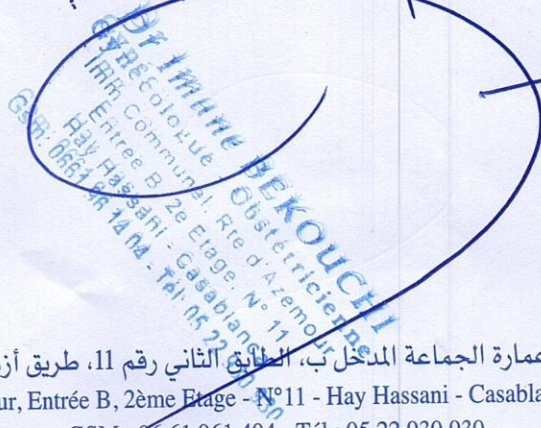 Dr Imane BEKOUCHI
Gynécologue - Obstétricienne
IMM Communal. Rte d'Azemour
Entrée B 2e Etage. N° 11
Hay Hassani - Casablanca
Gsm: 0661 96 14 04 - Tél: 05 22 930
عمارة الجماعة المدخل ب، الطابق الثاني رقم 11، طريق أز
ur, Entrée B, 2ème Etage - N°11 - Hay Hassani - Casabla
GSM : 06 61 961 404 - Tél : 05 22 930 930